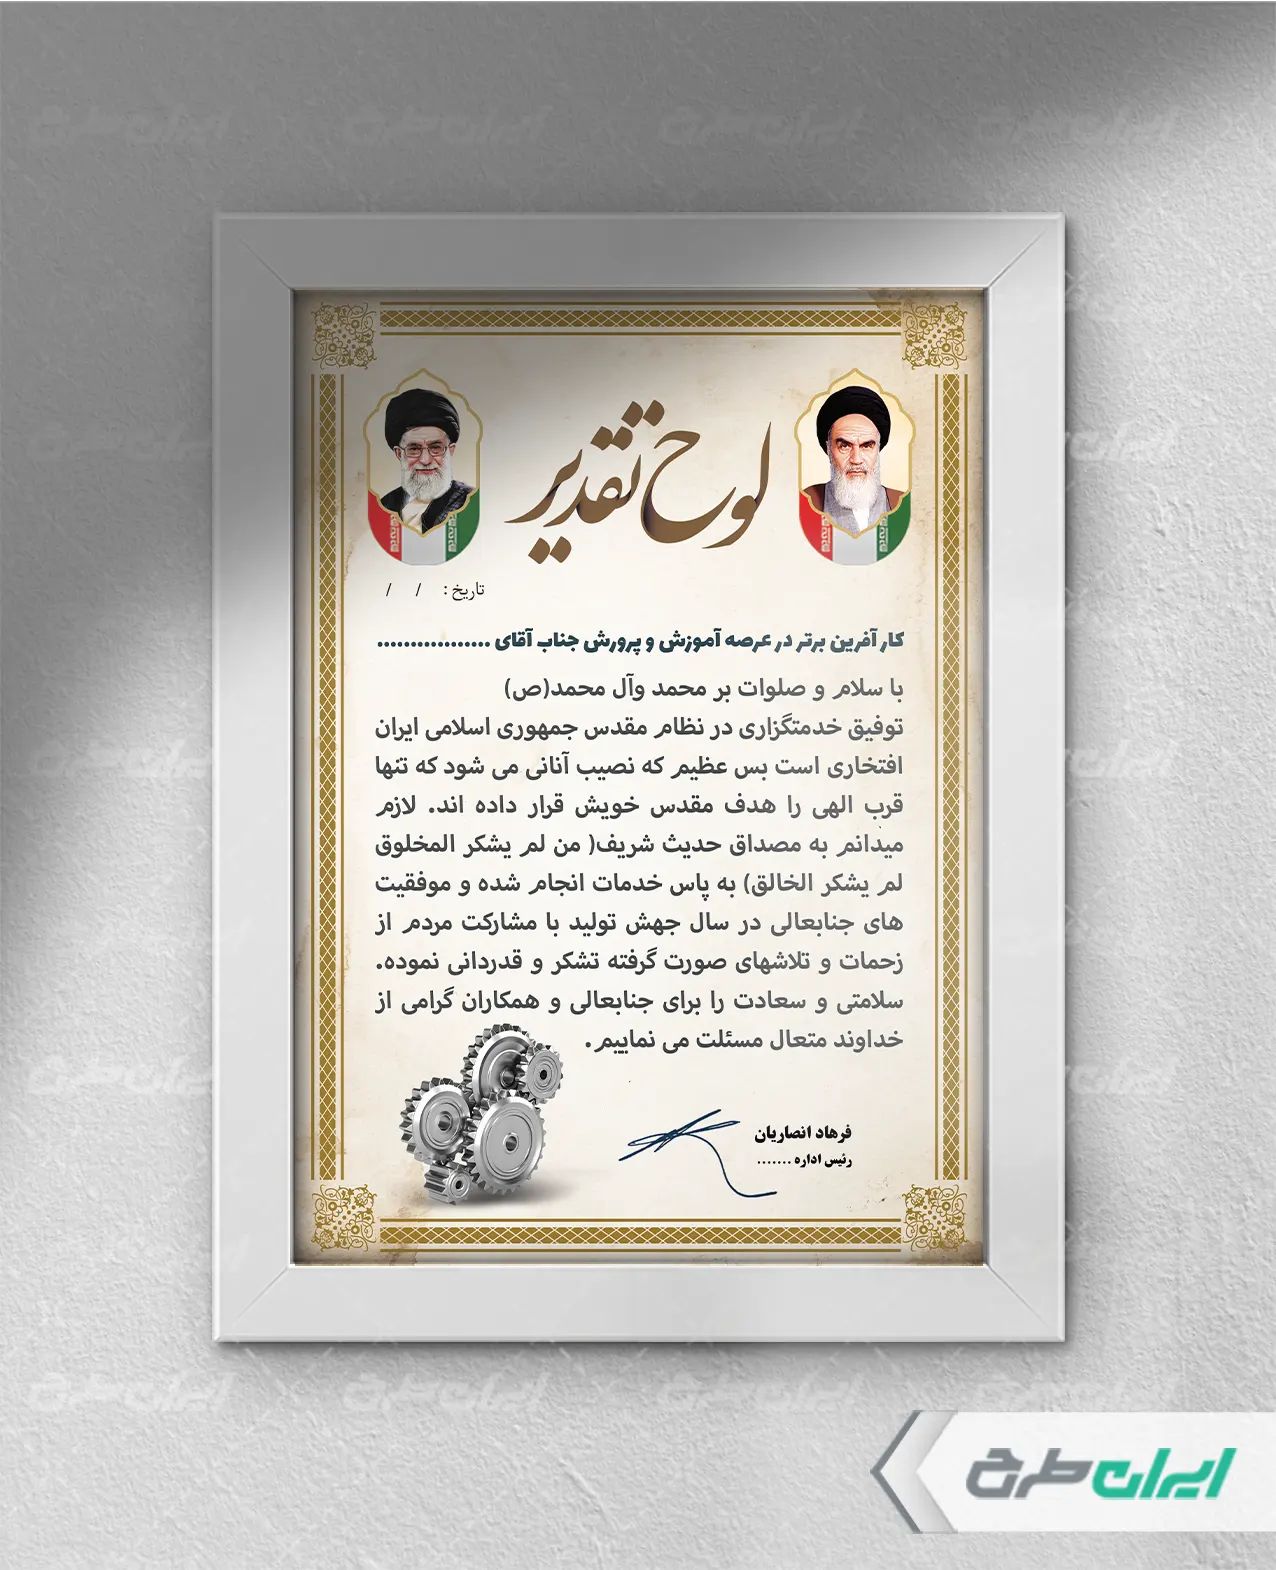 لوح تقدیر
تاریخ :    /    /
کارآفرین برتر در عرصه آموزش و پرورش جناب آقای .................
با سلام و صلوات بر محمد وآل محمد(ص)
توفیق خدمتگزاری در نظام مقدس جمهوری اسلامی ایران
افتخاری است بس عظیم که نصیب آنانی می شود که تنها
قرب الهی را هدف مقدس خویش قرار داده اند. لازم
میدانم به مصداق حدیث شریف( من لم یشکر المخلوق
لم یشکر الخالق) به پاس خدمات انجام شده و موفقیت
های جنابعالی در سال جهش تولید با مشارکت مردم از
زحمات و تلاشهای صورت گرفته تشکر و قدردانی نموده.
سلامتی و سعادت را برای جنابعالی و همکاران گرامی از
خداوند متعال مسئلت می نماییم.
فرهاد انصاریان
رئیس اداره .......
ایران طرح